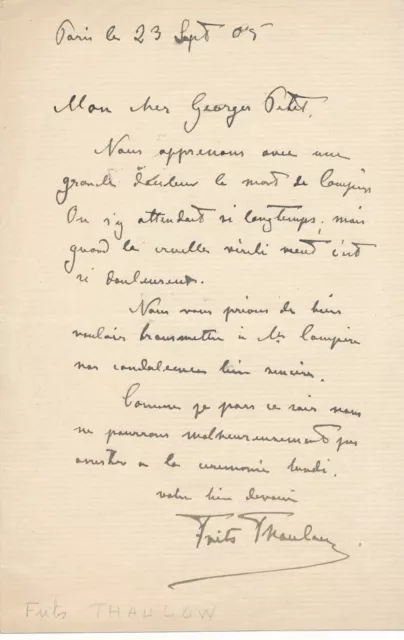 Paris le 23 Sept 05
Mon cher Georges Petit,
Nous apprenons avec une
grande douleur le mort de
On s'y attendait si longtemps, mais
quand la cruelle vérité c'est
si douloureux.
Nous vous prions de bien
vouloir transmettre à
nos condoléances bien sincères.
Comme je pars ce soir nous
ne pourrons malheureusement pas
assister a la ceremonie lundi.
votre bien
Frits Thaulow
Frits THAULOW